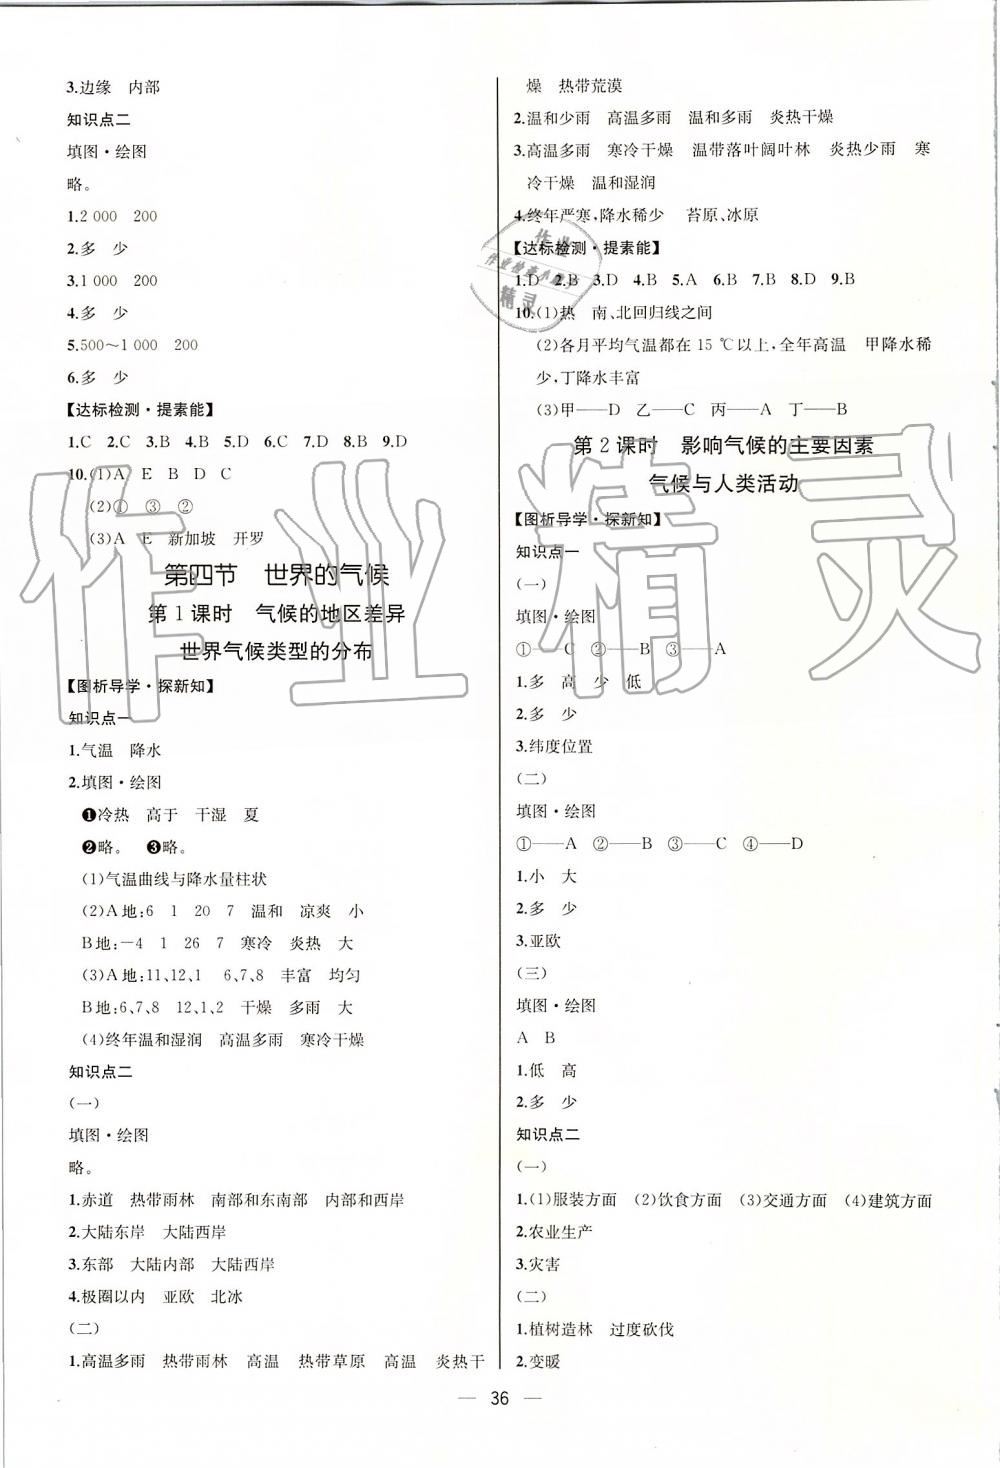 3.边缘　内部
知识点二
填图·绘图
略。
1.2 000　200
2.多　少
3.1 000　200
4.多　少
5.500～1 000　200
6.多　少
【达标检测·提素能】
1.C　2.C　3.B　4.B　5.D　6.C　7.D　8.B　9.D
10.(1)A　E　B　D　C
(2)①　③　②
(3)A　E　新加坡　开罗
第四节　世界的气候
第1课时　气候的地区差异
世界气候类型的分布
【图析导学·探新知】
知识点一
1.气温　降水
2.填图·绘图
❶冷热　高于　干湿　夏
❷略。　❸略。
(1)气温曲线与降水量柱状
(2)A地:6　1　20　7　温和　凉爽　小
B地:－4　1　26　7　寒冷　炎热　大
(3)A地:11、12、1　6、7、8　丰富　均匀
B地:6、7、8　12、1、2　干燥　多雨　大
(4)终年温和湿润　高温多雨　寒冷干燥
知识点二
(一)
填图·绘图
略。
1.赤道　热带雨林　南部和东南部　内部和西岸
2.大陆东岸　大陆西岸
3.东部　大陆内部　大陆西岸
4.极圈以内　亚欧　北冰
(二)
1.高温多雨　热带雨林　高温　热带草原　高温　炎热干
燥　热带荒漠
2.温和少雨　高温多雨　温和多雨　炎热干燥
3.高温多雨　寒冷干燥　温带落叶阔叶林　炎热少雨　寒
冷干燥　温和湿润
4.终年严寒,降水稀少　苔原、冰原
【达标检测·提素能】
1.D　2.B　3.D　4.B　5.A　6.B　7.D　8.D　9.B
10.(1)热　南、北回归线之间
(2)各月平均气温都在 15 ℃以上,全年高温　甲降水稀
少,丁降水丰富
(3)甲——D　乙——C　丙——A　丁——B
第2课时　影响气候的主要因素
气候与人类活动
【图析导学·探新知】
知识点一
(一)
填图·绘图
①——C　②——B　③——A
1.多　高　少　低
2.多　少
3.纬度位置
(二)
填图·绘图
①——A　②——B　③——C　④——D
1.小　大
2.多　少
3.亚欧
(三)
填图·绘图
A　B
1.低　高
2.多　少
知识点二
(一)
1.(1)服装方面　(2)饮食方面　(3)交通方面　(4)建筑方面
2.农业生产
3.灾害
(二)
1.植树造林　过度砍伐
2.变暖
— 36 —
作业精灵
作业
作业检查小助手
精灵